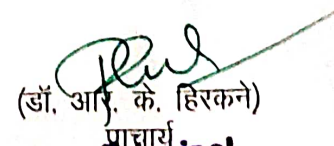 (डॉ. आर. के. हिरकने)
प्राचार्य